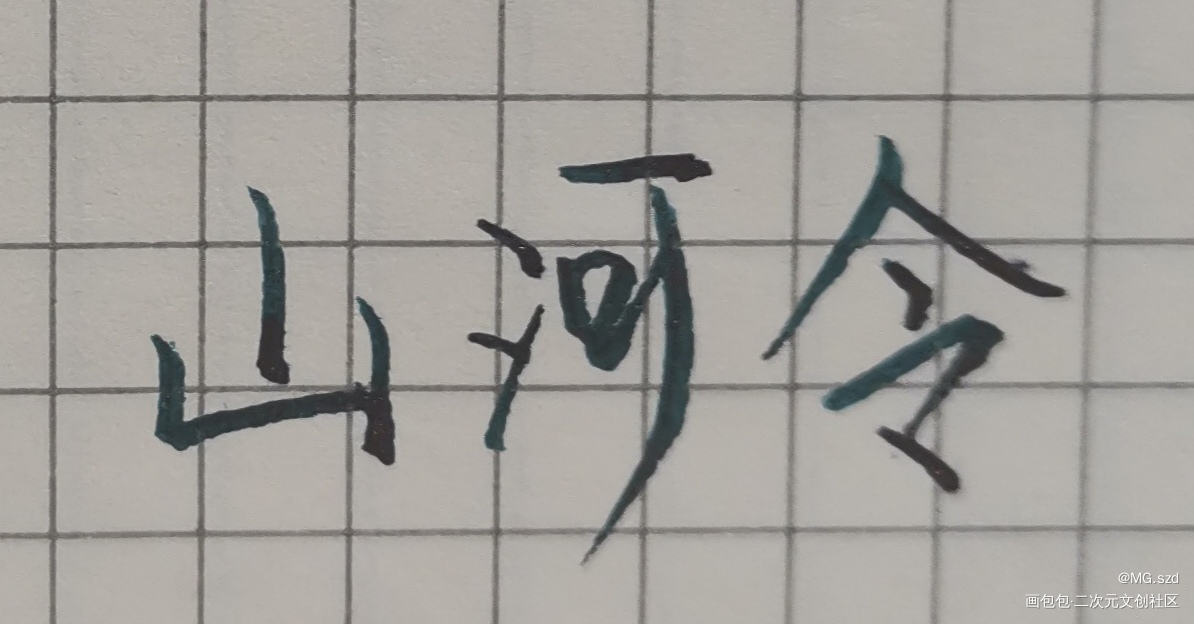 山河令
@MG.szd
画包包·二次元文创社区